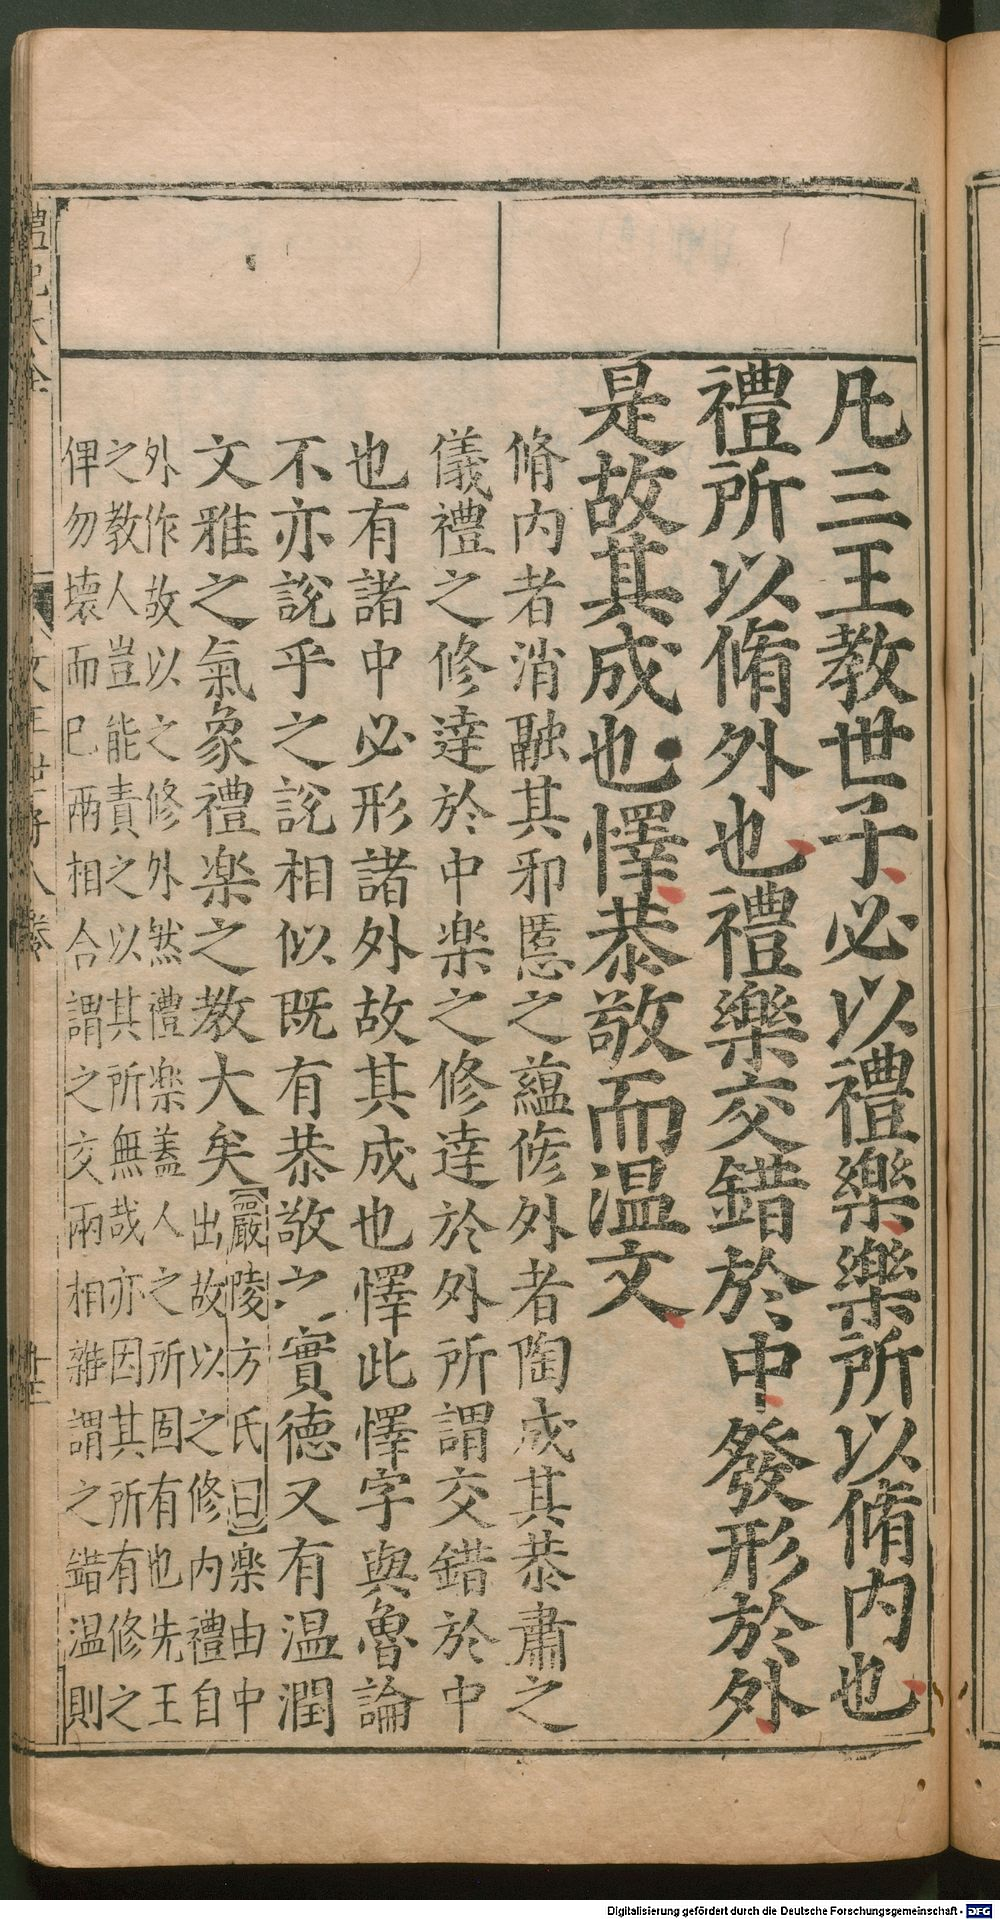 凡三王教世子必以禮樂樂所以脩内也
禮所以脩外也禮樂交錯於中發形於外
是故其成也懌恭敬而温文
脩内者消融其邪慝之蘊脩外者陶成其恭肅之
儀禮之修達於中楽之修達於外所謂交錯於中
也有諸中必形諸外故其成也懌此懌字與魯論
不亦説乎之説相似既有恭敬之實德又有温潤
文雅之氣象禮楽之教大矣
嚴陵方氏曰楽由中
出故以之修内禮自
外作故以之修外然禮楽盖人之所固有也先王
之教人豈能責之以其所無哉亦因其所有修之
俾勿壞而已兩相合謂之交兩相雜謂之錯温則
禮記大全
文王世子八卷
Digitalisierung gefördert durch die Deutsche Forschungsgemeinschaft - DFG